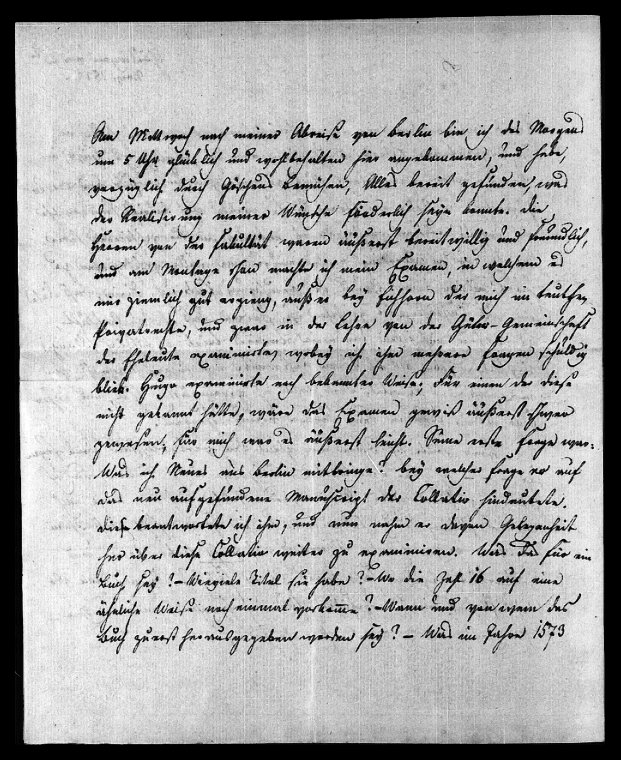 Am Mittwoch nach meiner Abreise von Berlin bin ich des Morgens
um 5 Uhr glücklich und wohlbehalten hier angekommen, und habe,
vorzüglich durch Göschens Bemühen, Alles bereit gefunden, was
der Realisirung meiner Wünsche förderlich seyn konnte. Die
Herren von der Fakultät waren äußerst bereitwillig und freundlich,
und am Montage schon machte ich mein Examen, in welchem es
mir ziemlich gut erging, außer bey Eichhorn der mich im teutschen
Privatrechte, und zwar in der Lehre von der Güter-Gemeinschaft
der Eheleute examinirte, wobey ich ihm mehrere Fragen schuldig
blieb. Hugo examinirte nach bekannter Weise; für einen der diese
nicht gekannt hätte, wäre das Examen gewiß äußerst schwer
gewesen, für mich war es äußerst leicht. Seine erste Frage war:
Was ich Neues aus Berlin mitbringe? bey welcher Frage er auf
das neu aufgefundene Manuscript der Collatio hindeutete.
Diese beantwortete ich ihm, und nun nahm er davon Gelegenheit
her über diese Collatio weiter zu examiniren. Was das für ein
Buch sey? - Wieviele Titel sie habe? - Wo die Zahl 16 auf eine
ähnliche Weise noch einmal vorkomme? - Wann und von wem das
Buch zuerst herausgegeben worden sey? - Was im Jahre 1573